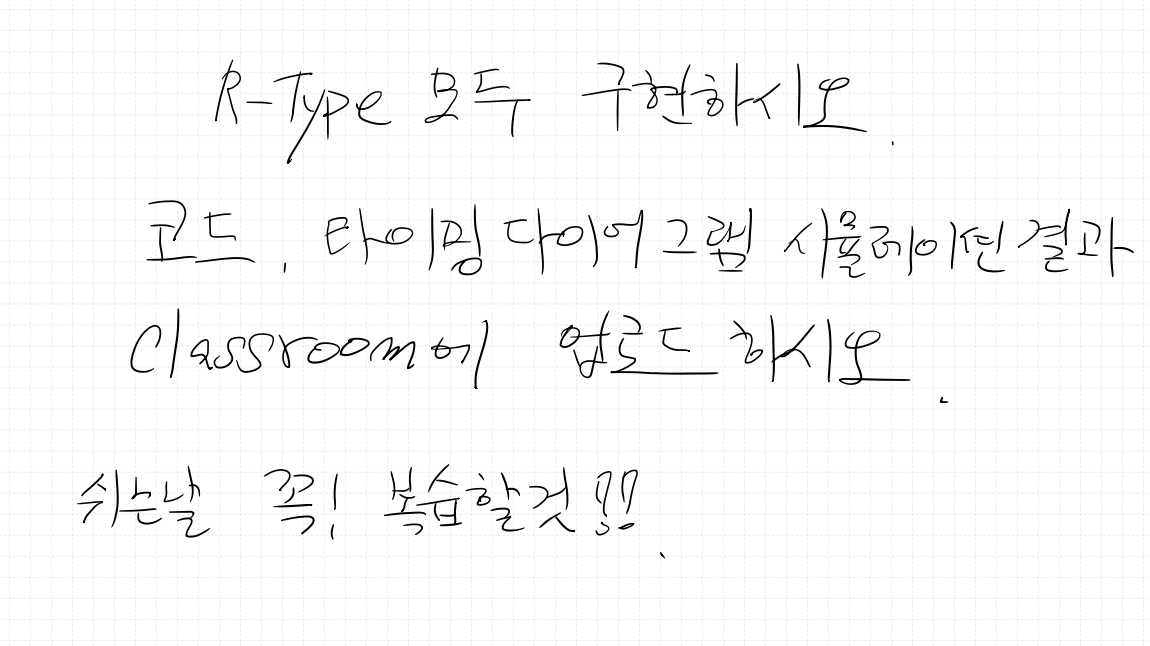 R-Type 모두 구현하시오.
코드, 타이밍 다이어그램 시뮬레이션 결과
classroom에 업로드 하시오.
쉬는날 꼭! 복습할것!!.